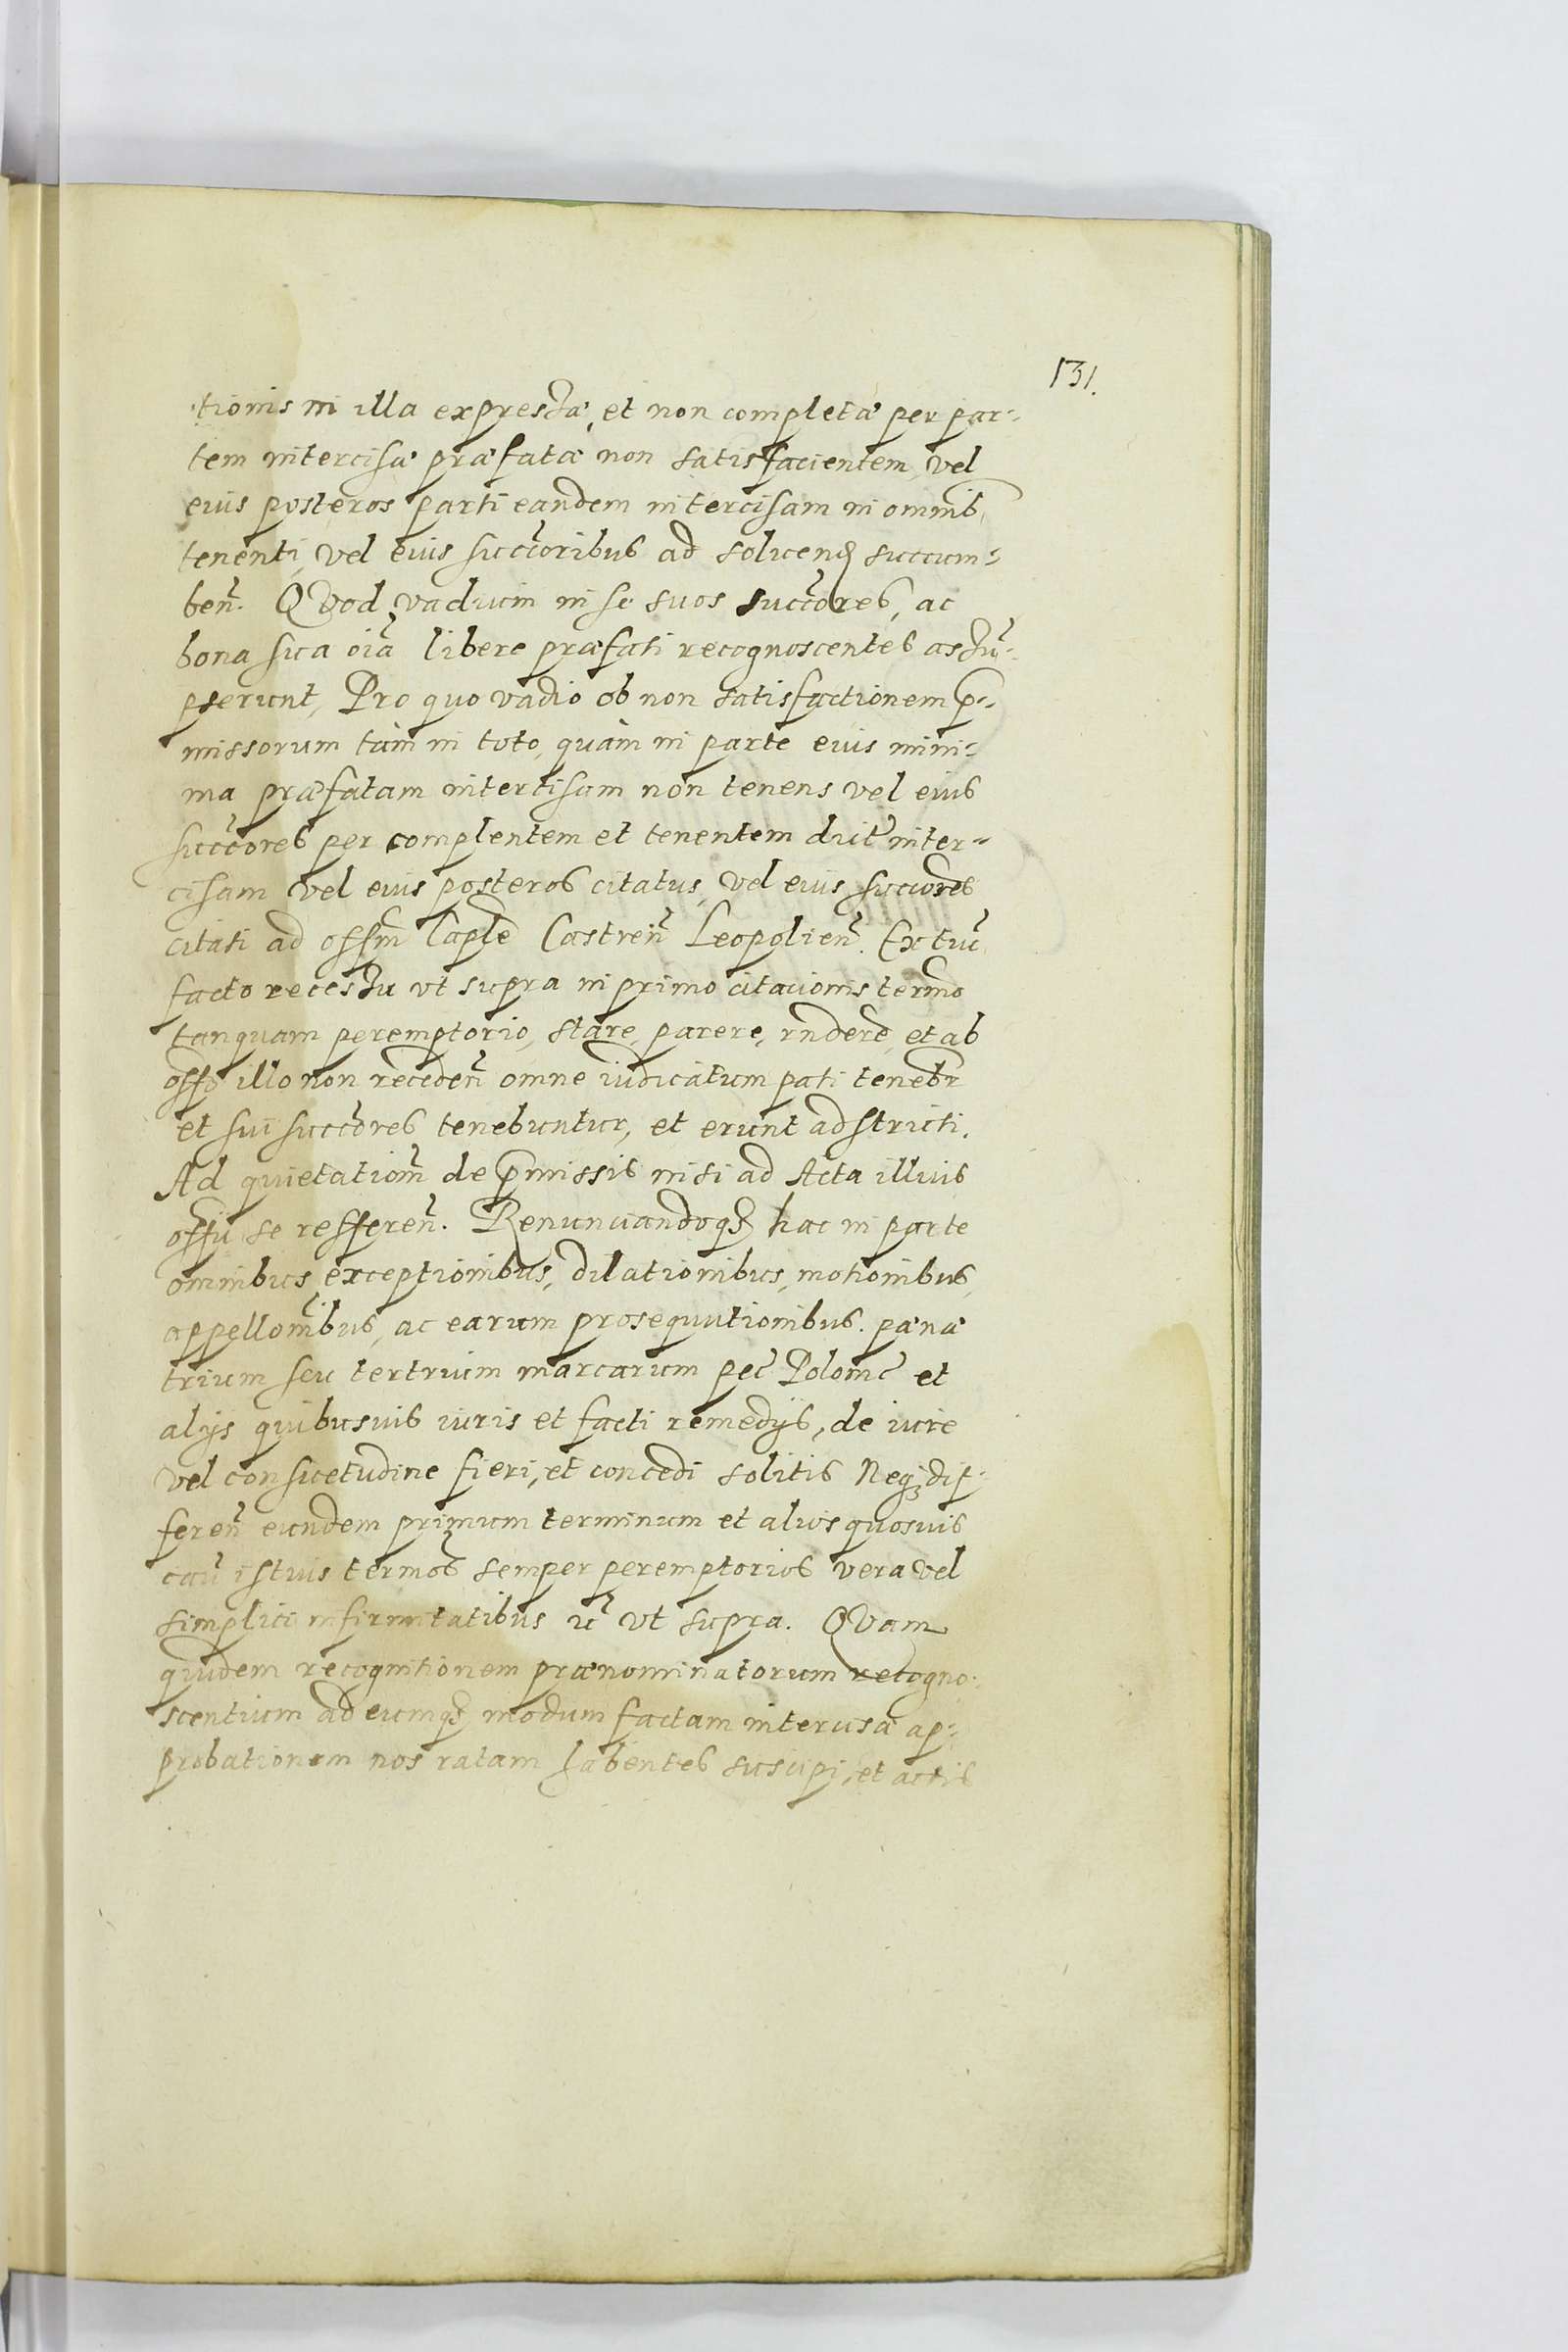 131.
tionis in illa expressæ, et non completæ per par-
tem intercisæ præfatæ non satisfacientem, vel
eius posteros parti eandem intercisam in omnib9
tenenti, vel eius succ̃oribus ad soluend̃ succum-
beñ. QVod vadium in se suos succ̃ores, ac
bona sua oiã libere præfati recognoscentes assũ-
pserunt, Pro quo vadio ob non satisfactionem p̄-
missorum tàm in toto, quàm in parte eius mini-
ma præfatam intercisam non tenens vel eius
succ̃ores per complentem et tenentem dict̃ inter-
cisam vel eius posteros citatus, vel eius succores
citati ad offm̃ Caplẽ Castreñ Leopolieñ. Ex tũc
facto recessu vt supra in primo citacionis term̃o
tanquam peremptorio, stare, parere, rñdere, et ab
offo illo non recedeñ omne iudicatum pati tenebr̃
et sui succ̃ores tenebuntur, et erunt adstricti.
Ad quietatiom̃ de p̄missis nisi ad Acta illius
offii se refferen̄. Renunciandoq3 hac in parte
omnibus exceptionibus, dilationibus, motionibus,
appellom̃bus, ac earum prosequutionibus. pænæ
trium seu tertrium marcarum pec̃ Polonic̃ et
alijs quibusuis iuris et facti remedijs, de iure
vel consuetudine fieri, et concedi solitis Neq3 dif-
fereñ eundem primum terminum et alios quosuis
caũ istius term̃os semper peremptorios vera vel
simplici infirmitatibus ic̃ vt supra. QVam
quidem recognitionem prænominatorum recogno-
scentium ad eumq3 modum factam intercisæ ap-
probationem nos ratam habentes suscipi, et actis